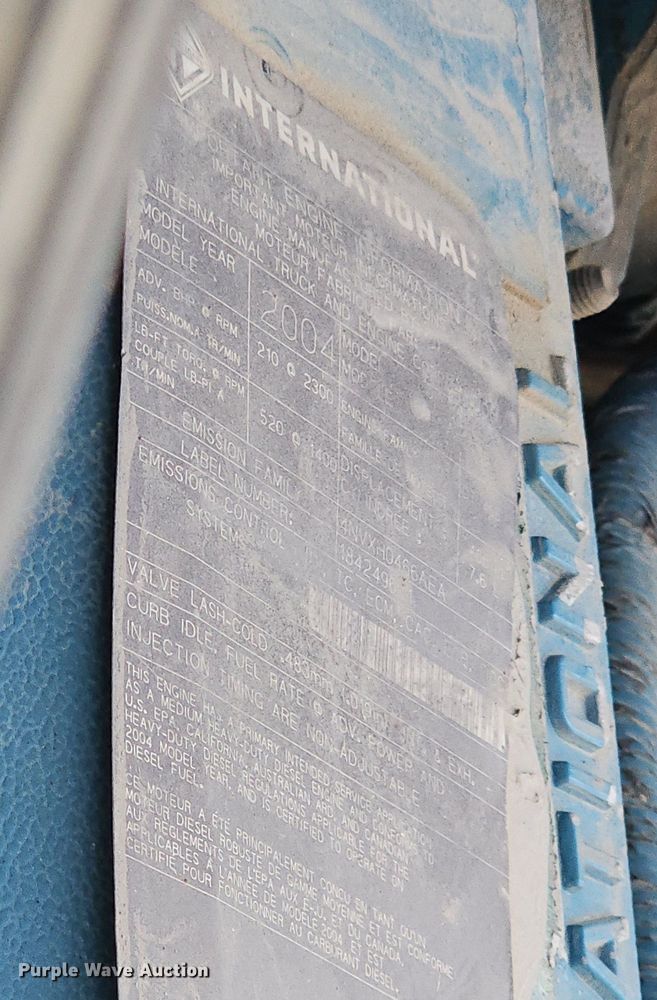 INTERNATIONAL
ENGINE INFORMATION
IMPORTANT MOTEUR INFORMATION
ENGINE MANUFACTURED
MOTEUR FABRIQUÉ PAR
INTERNATIONAL TRUCK AND ENGINE
MODEL YEAR 2004 MODEL
MODÈLE
ADV. BHP @ RPM 210 @ 2300
PUISS.NOM.A TR/MIN
LB-FT TORQ. @ RPM 520 @ 1400 DISPLACEMENT 7.6
COUPLE LB-PI A
T-1/MIN
EMISSION FAMILY 4NVXH0466AEA
LABEL NUMBER.
EMISSIONS CONTROL TC, ECM, CAC
SYSTEM
VALVE LASH-COLD .483mm & EXH.
CURB IDLE, FUEL RATE @ ADV. POWER AND
INJECTION TIMING ARE NON-ADJUSTABLE
THIS ENGINE HAS A PRIMARY INTENDED SERVICE APPLICATION
AS A MEDIUM HEAVY-DUTY DIESEL ENGINE AND CONFORMS TO
U.S. EPA, CALIFORNIA, AUSTRALIAN ARD, AND CANADIAN
HEAVY-DUTY DIESEL REGULATIONS APPLICABLE FOR THE
2004 MODEL YEAR, AND IS CERTIFIED TO OPERATE ON
DIESEL FUEL.
CE MOTEUR A ÉTÉ PRINCIPALEMENT CONCU EN TANT QU'UN
MOTEUR DIESEL ROBUSTE DE GAMME MOYENNE ET EST CONFORME
AUX RÈGLEMENTS DE L'EPA AUX É.U. ET DU CANADA,
APPLICABLES À L'ANNÉE DE MODÈLE 2004, ET EST
CERTIFIÉ POUR FONCTIONNER AU CARBURANT DIESEL.
ATIONAL
Purple Wave Auction